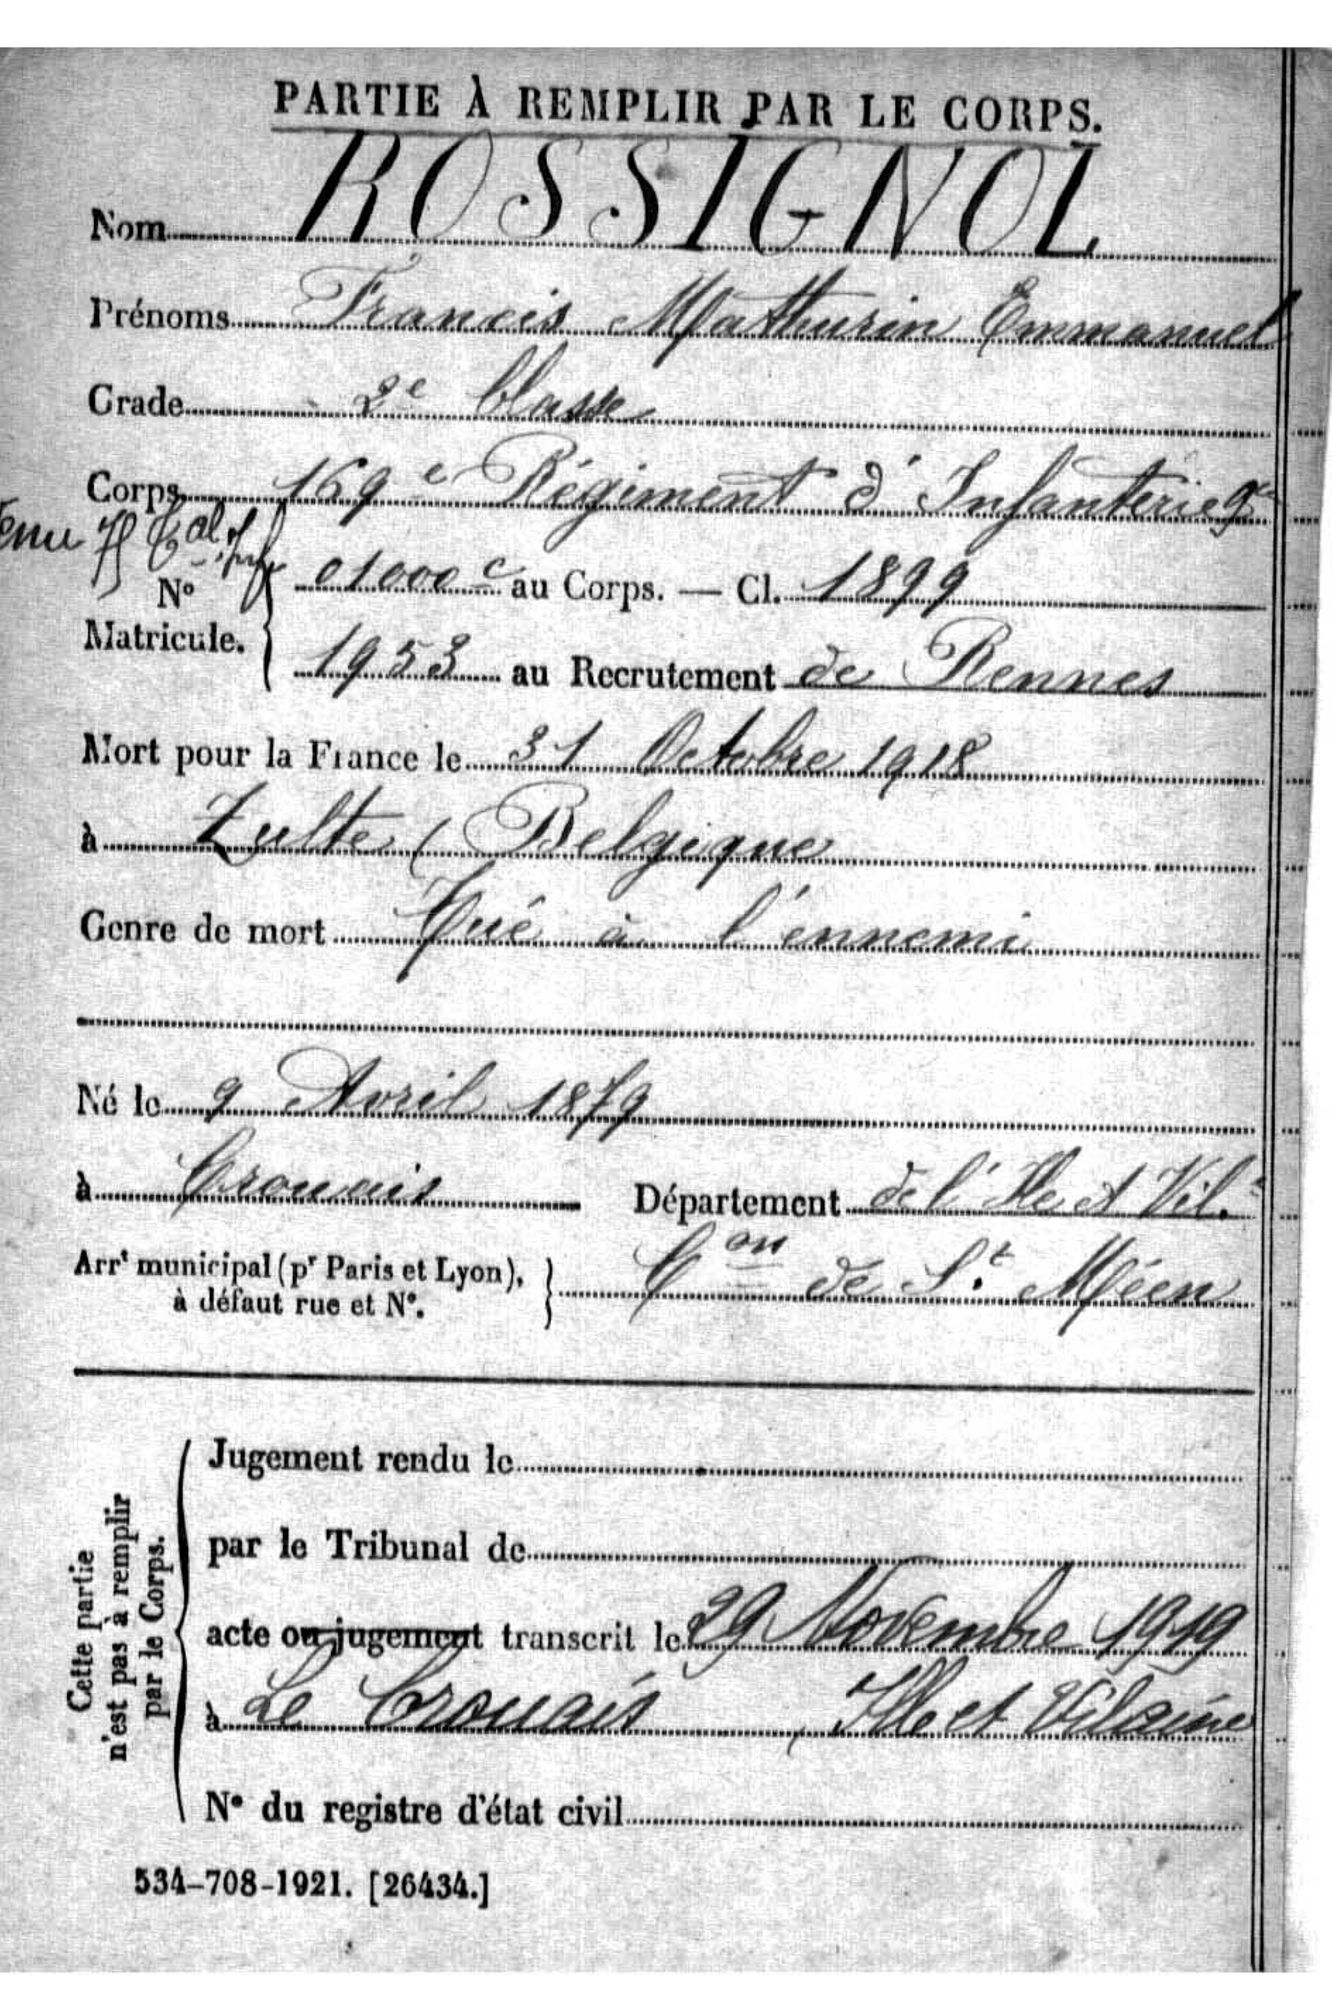 PARTIE À REMPLIR PAR LE CORPS.
Nom ROSSIGNOL
Prénoms Francis Mathurin Emmanuel
Grade 2e Classe
Corps 169e Régiment d'Infanterie
No Matricule. 01000 c au Corps. — Cl. 1899
1953 au Recrutement de Rennes
Mort pour la France le 31 Octobre 1918
à Zulte (Belgique
Genre de mort Tué à l'énnemi
Né le 9 Avril 1879
à Crouais Département de l'Ile et Vil.
Arrt municipal (pr Paris et Lyon), à défaut rue et No. Con de St Méen
Cette partie n'est pas à remplir par le Corps.
Jugement rendu le
par le Tribunal de
acte ou jugement transcrit le 29 Novembre 1919
à Le Crouais, Ille et Vilaine
No du registre d'état civil
534-708-1921. [26434.]